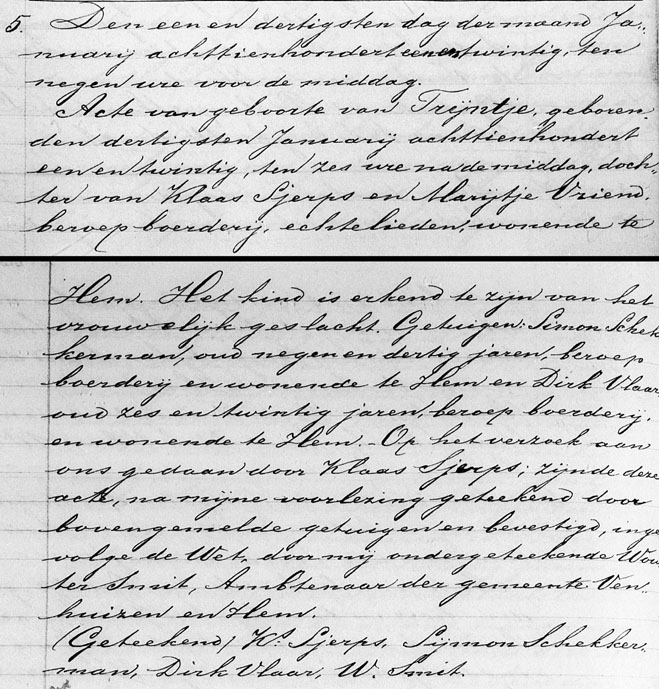 5. Den een en dertigsten dag der maand Ja„
nuarij achttienhondert een en twintig, ten
negen ure voor de middag.
Acte van geboorte van Trijntje, geboren
den dertigsten Januarij achttienhondert
een en twintig, ten zes ure na de middag, doch„
ter van Klaas Sjerps en Marijtje Vriend,
beroep boerderij, echtelieden, wonende te
Hem. Het kind is erkend te zijn van het
vrouwelijk geslacht. Getuigen: Simon Schek
kerman, oud negen en dertig jaren, beroep
boerderij en wonende te Hem en Dirk Vlaar
oud zes en twintig jaren, beroep boerderij,
en wonende te Hem. Op het verzoek aan
ons gedaan door Klaas Sjerps; zijnde deze
acte, na mijne voorlezing geteekend door
bovengemelde getuigen en bevestigd, inge
volge de Wet, door mij ondergeteekende Wou
ter Smit, Ambtenaar der gemeente Ven„
huizen en Hem.
(Geteekend) Ks. Sjerps, Sijmon Schekker„
man, Dirk Vlaar, W. Smit.